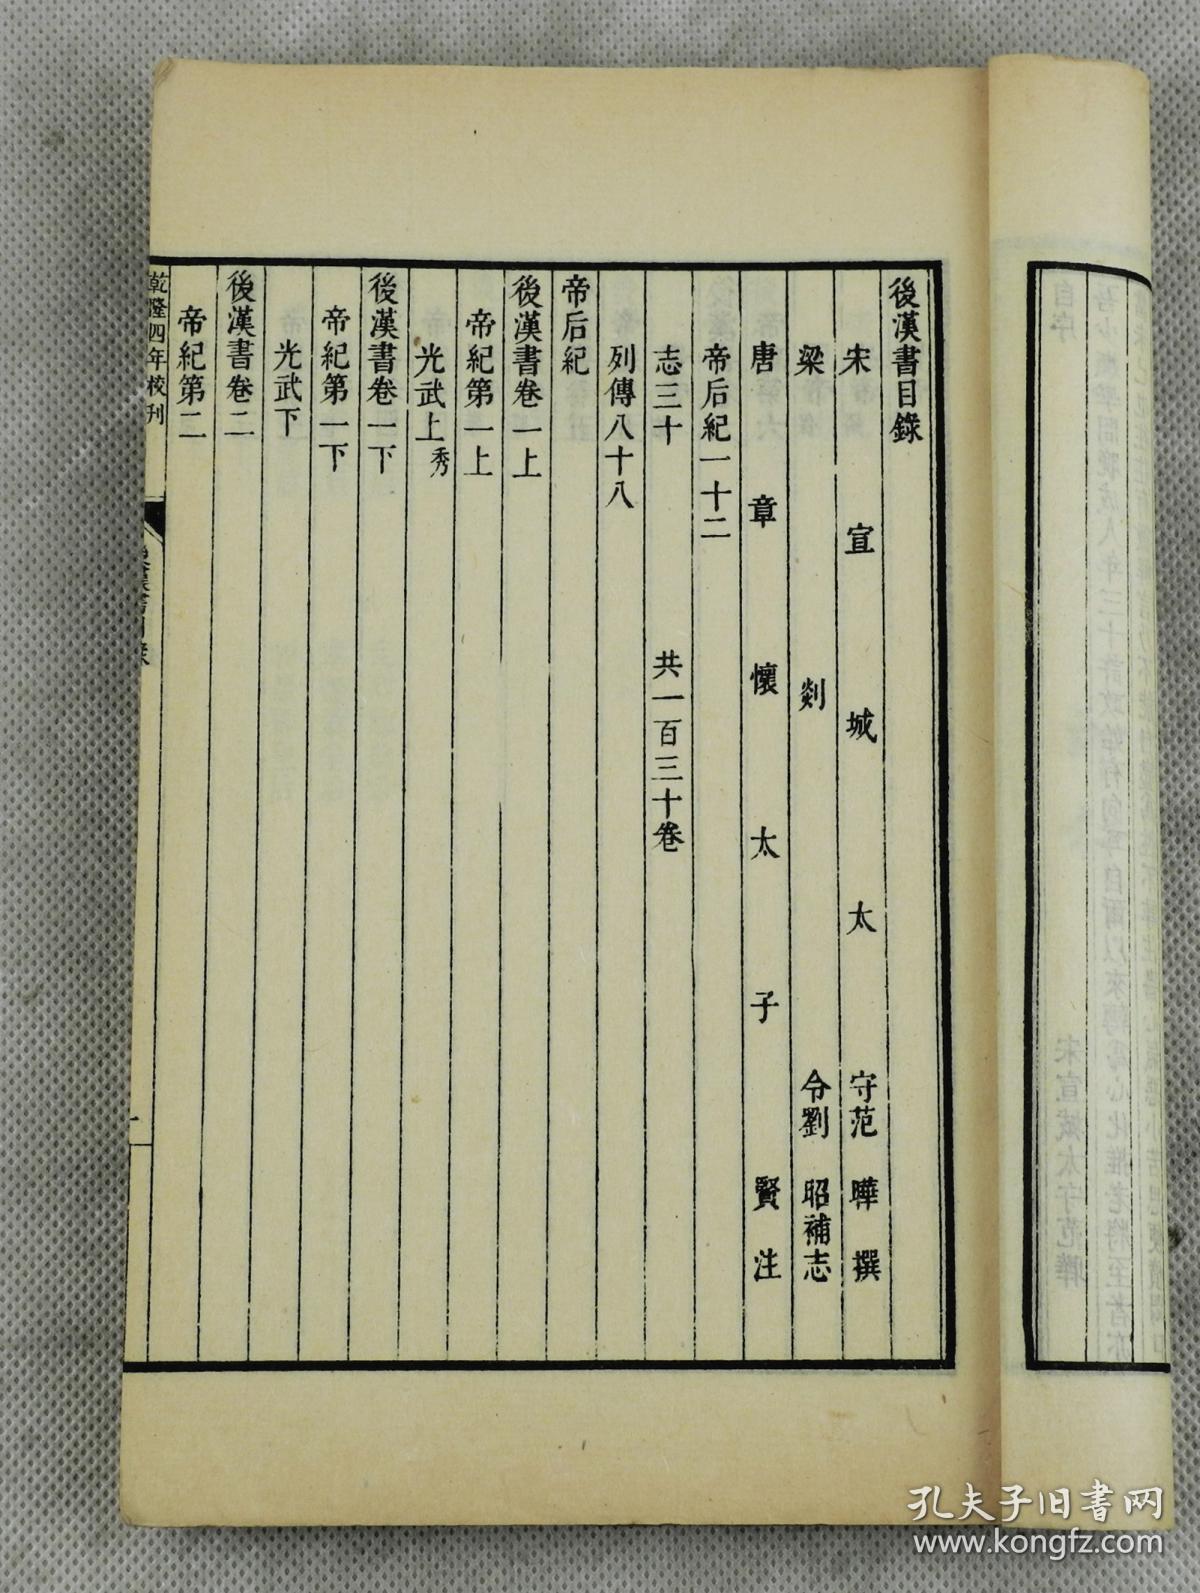 後漢書目錄
宋宣城太守范曄撰
梁剡令劉昭補志
唐章懷太子賢注
帝后紀一十二
志三十 共一百三十卷
列傳八十八
帝后紀
後漢書卷一上
帝紀第一上
光武上秀
後漢書卷一下
帝紀第一下
光武下
後漢書卷二
帝紀第二
乾隆四年校刊
一
孔夫子旧书网
www.kongfz.com